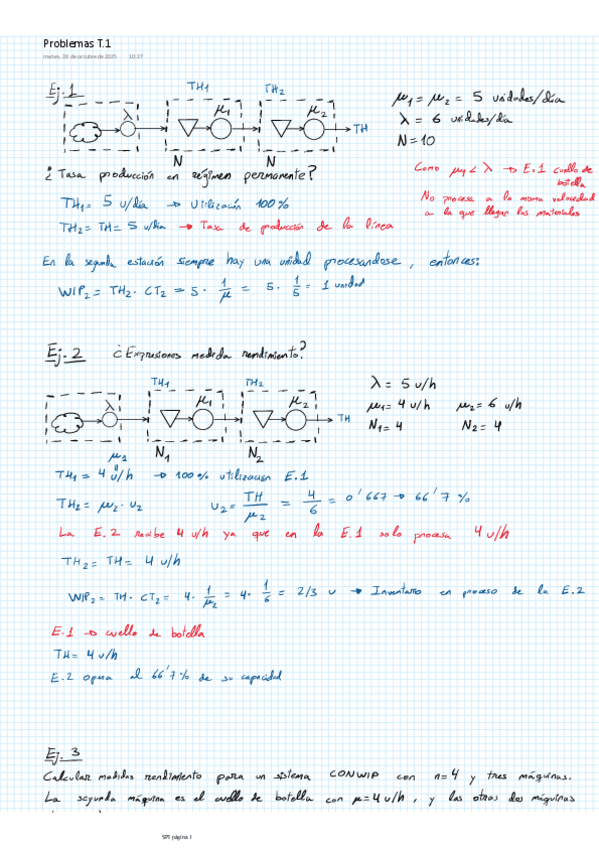 Problemas T.1
martes, 28 de octubre de 2025 10:27
Ej. 1
TH1 TH2
λ μ1 μ2 TH
N N
μ1 = μ2 = 5 unidades/día
λ = 6 unidades/día
N = 10
¿Tasa producción en régimen permanente?
Como μ1 < λ → E.1 cuello de botella
No procesa a la misma velocidad
a la que llegan los materiales
TH1 = 5 u/día → Utilización 100%
TH2 = TH = 5 u/día → Tasa de producción de la línea
En la segunda estación siempre hay una unidad procesandose, entonces:
WIP2 = TH2 · CT2 = 5 · 1/μ = 5 · 1/5 = 1 unidad
Ej. 2 ¿Expresiones medida rendimiento?
TH1 TH2
λ μ1 μ2 TH
N1 N2
λ = 5 u/h
μ1 = 4 u/h μ2 = 6 u/h
N1 = 4 N2 = 4
μ1
TH1 = 4 u/h → 100% utilización E.1
TH2 = μ2 · U2 U2 = TH/μ2 = 4/6 = 0'667 → 66'7 %
La E.2 recibe 4 u/h ya que en la E.1 solo procesa 4 u/h
TH2 = TH = 4 u/h
WIP2 = TH · CT2 = 4 · 1/μ2 = 4 · 1/6 = 2/3 u → Inventario en proceso de la E.2
E.1 → cuello de botella
TH = 4 u/h
E.2 opera al 66'7% de su capacidad
Ej. 3
Calcular medidas rendimiento para un sistema CONWIP con n=4 y tres máquinas.
La segunda máquina es el cuello de botella con μ=4 u/h, y las otras dos máquinas
SPI página 1